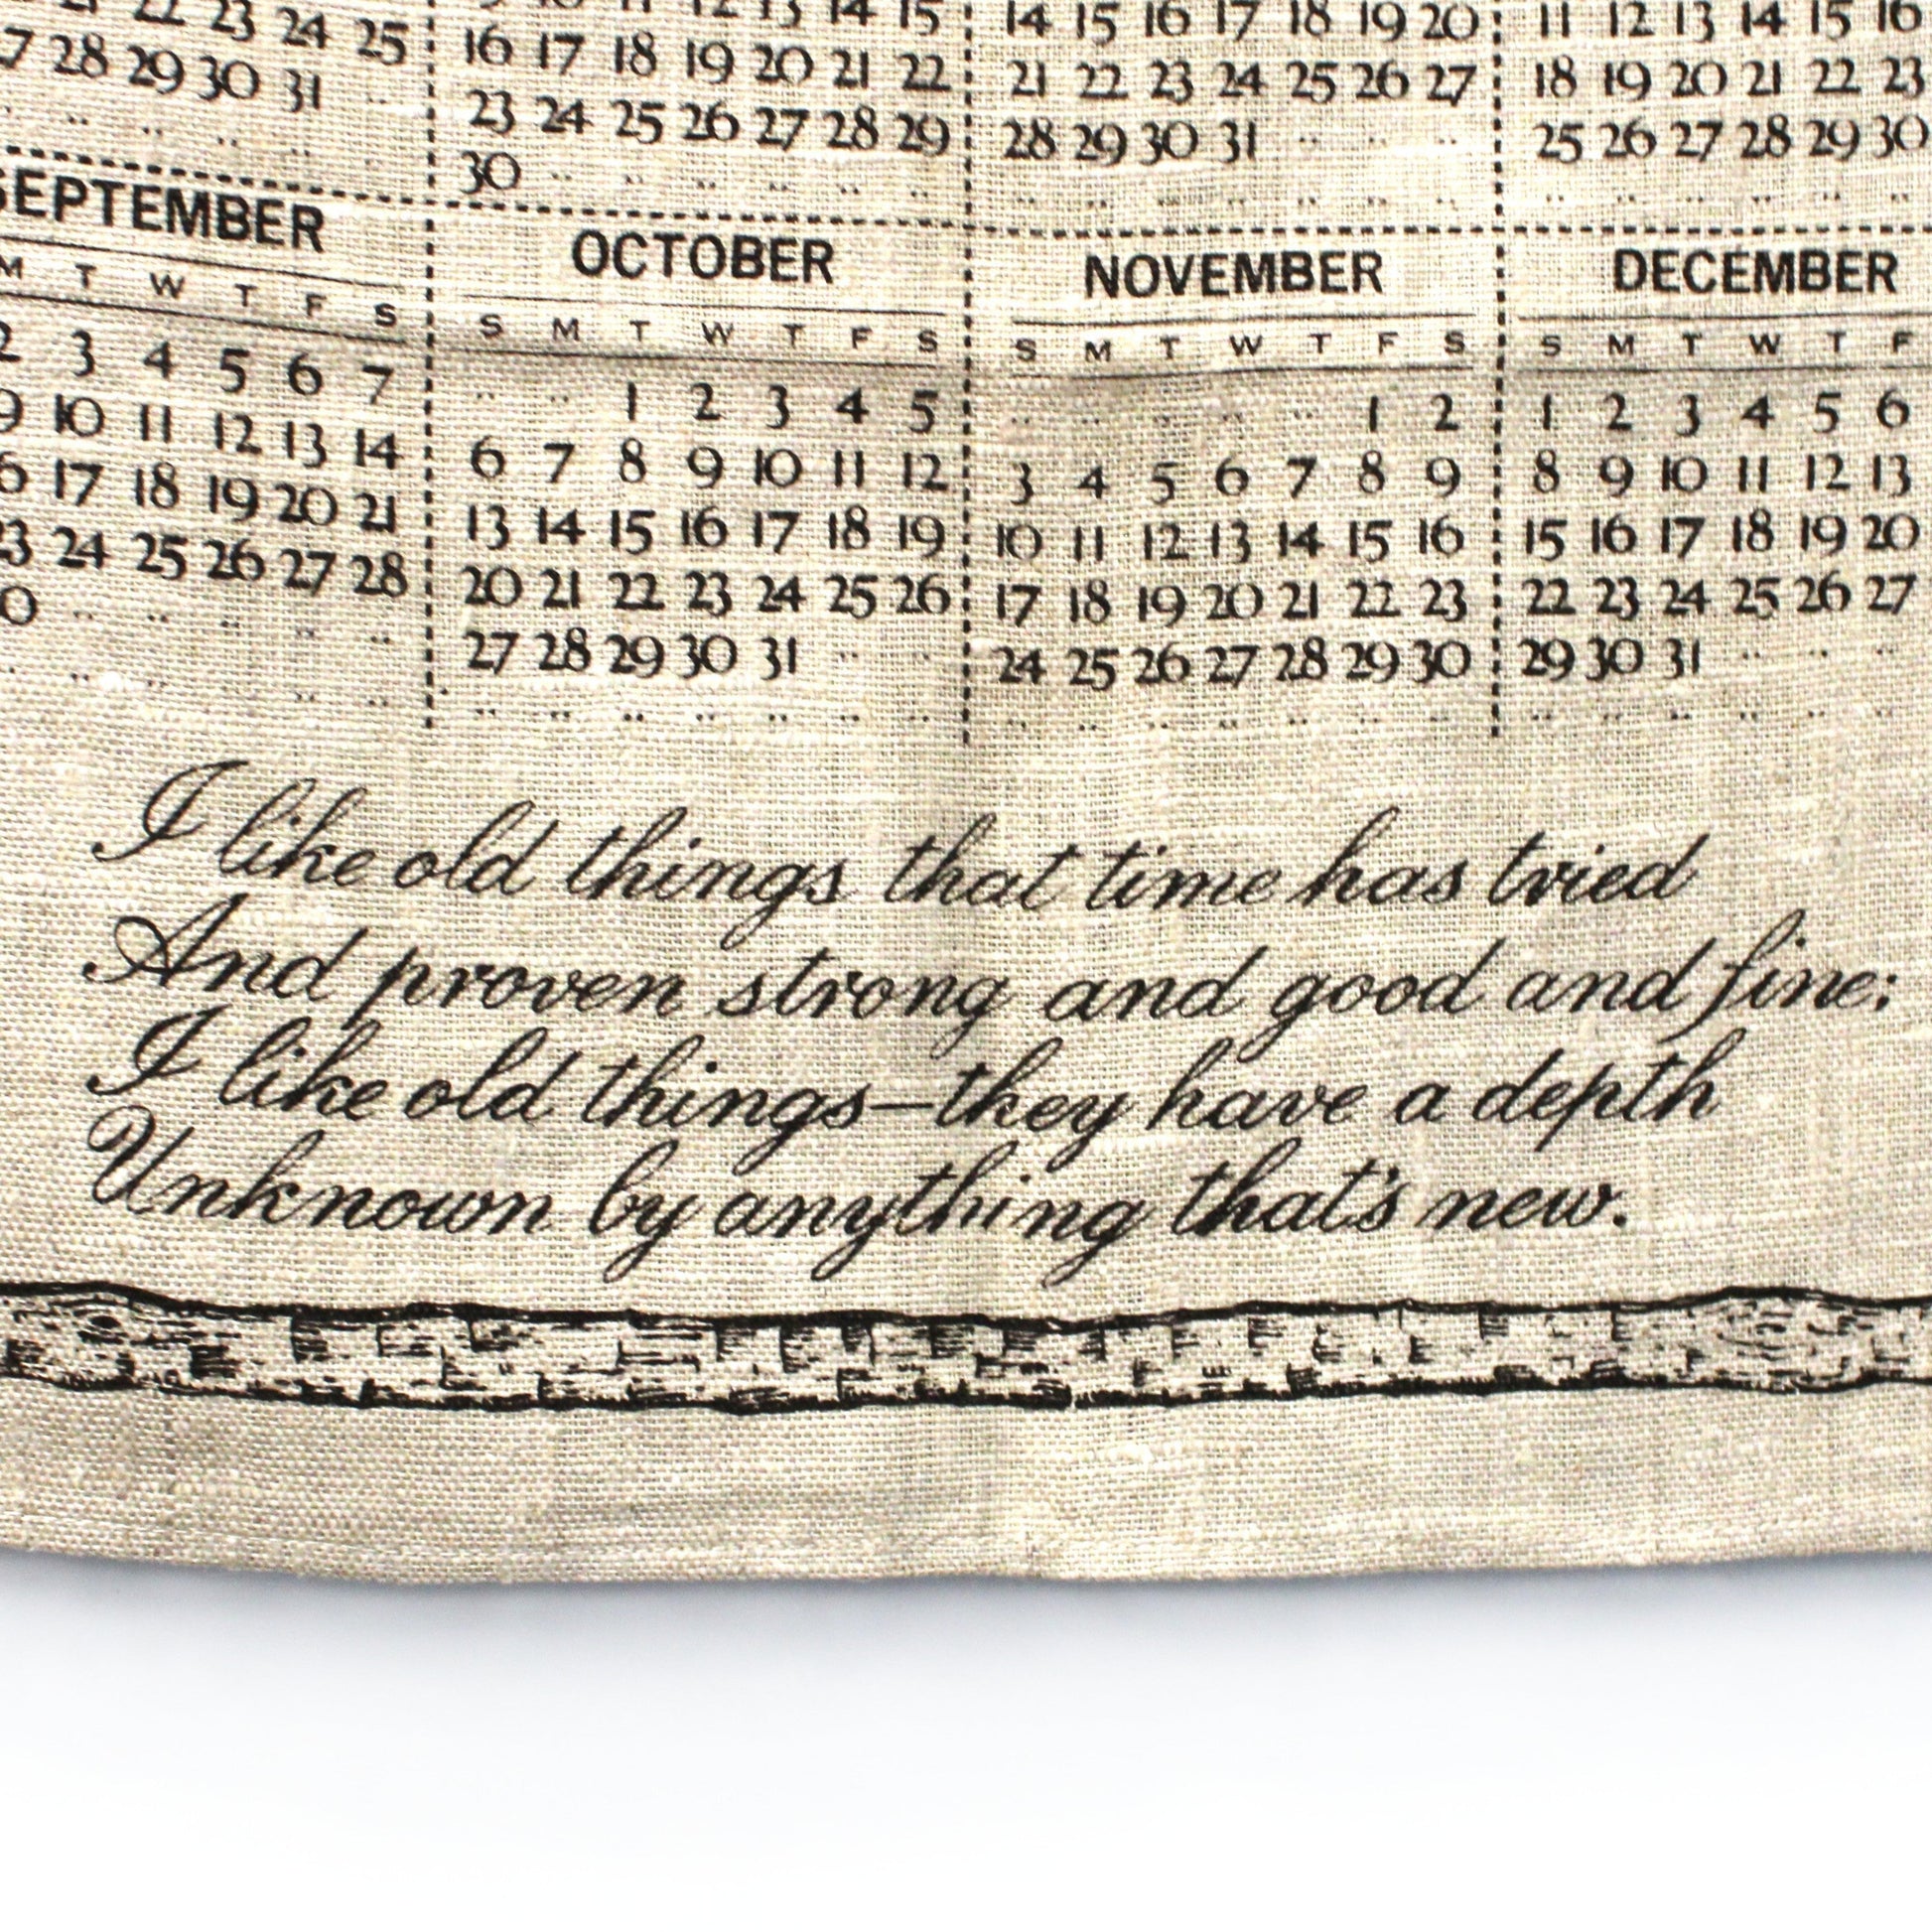 22 23 24 25
28 29 30 31
14 15
16 17 18 19 20 21 22
23 24 25 26 27 28 29
30
14 15 16 17 18 19 20
21 22 23 24 25 26 27
28 29 30 31
11 12 13 14 15 16
18 19 20 21 22 23
25 26 27 28 29 30
SEPTEMBER
M T W T F S
2 3 4 5 6 7
9 10 11 12 13 14
16 17 18 19 20 21
23 24 25 26 27 28
30
OCTOBER
S M T W T F S
1 2 3 4 5
6 7 8 9 10 11 12
13 14 15 16 17 18 19
20 21 22 23 24 25 26
27 28 29 30 31
NOVEMBER
S M T W T F S
1 2
3 4 5 6 7 8 9
10 11 12 13 14 15 16
17 18 19 20 21 22 23
24 25 26 27 28 29 30
DECEMBER
S M T W T F
1 2 3 4 5 6
8 9 10 11 12 13
15 16 17 18 19 20
22 23 24 25 26 27
29 30 31
I like old things that time has tried
And proven strong and good and fine;
I like old things—they have a depth
Unknown by anything that's new.